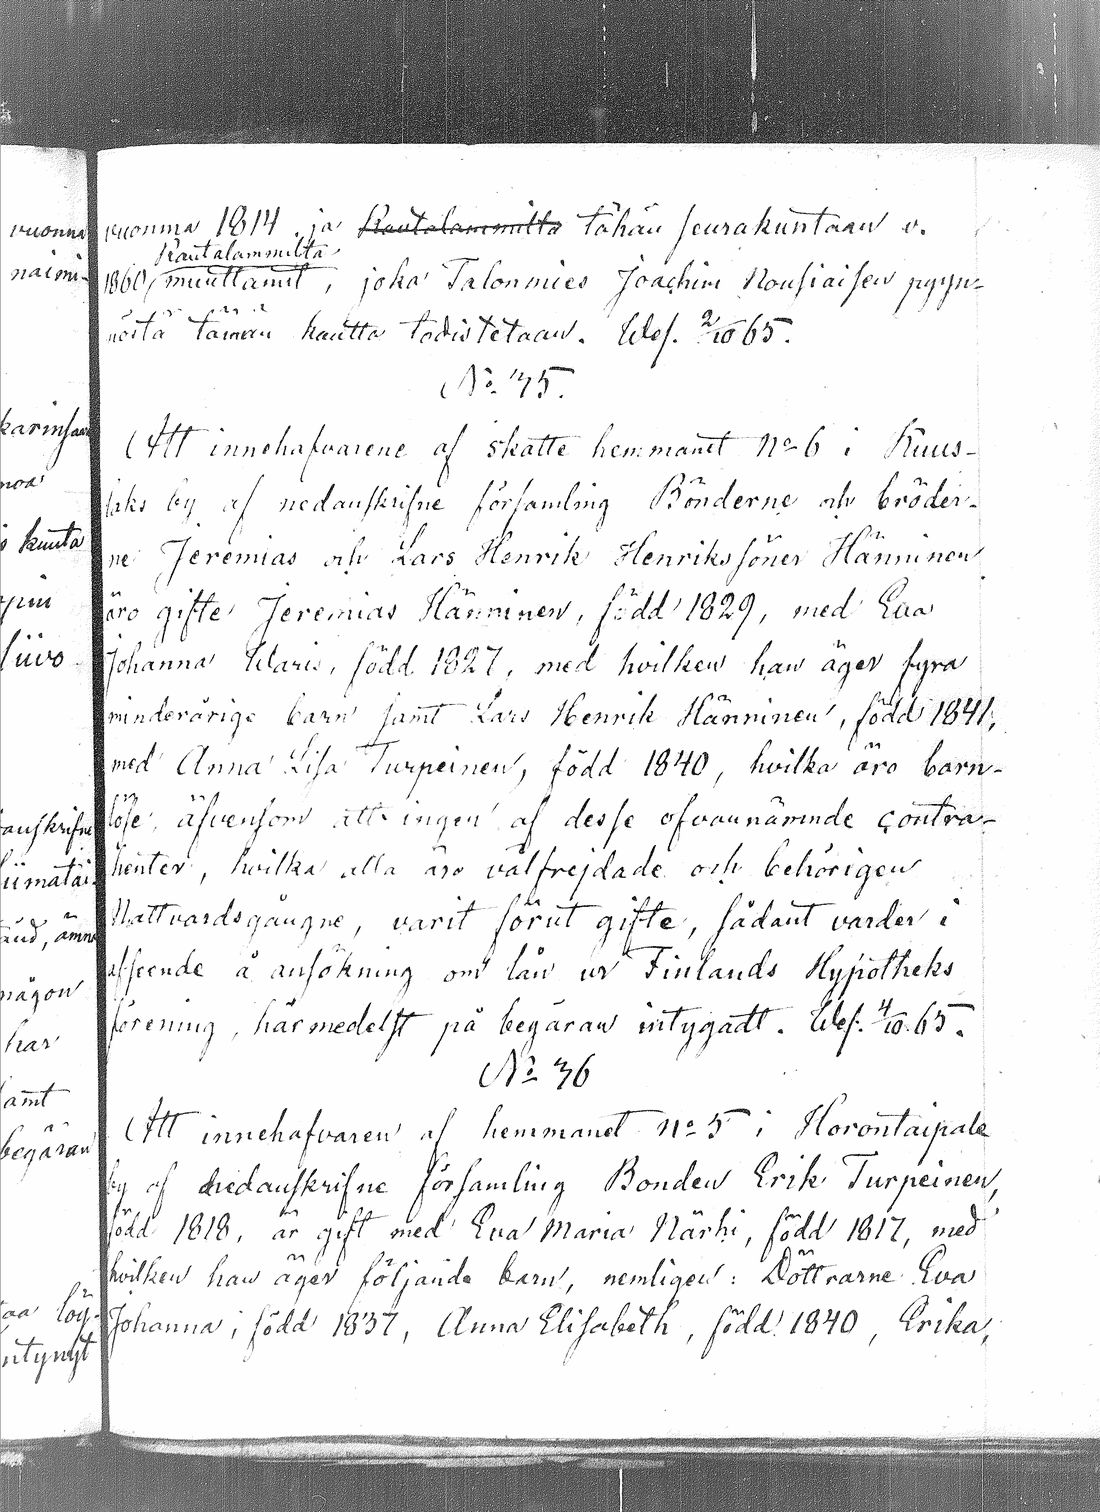 vuonna
naimi-
karinsaa
moa
s kautta
liivo
danskrifne
liimatai-
tånd, ämn
någon
har
samt
begäran
taa löy-
ntynyt
vuonna 1814 ja Rautalammilta tähän seurakuntaan v.
Rautalammilta
1860, muuttanut, joka Talonmies Joachim Nousiaisen pyyn-
nöstä tämän kautta todistetaan. Wes. 2/10 65.
No 35.
Att innehafvarene af skatte hemmanet No 6 i Kuus-
laks by af nedanskrifne församling Bönderne och bröder-
ne Jeremias och Lars Henrik Henrikssöner Hänninen
äro gifte Jeremias Hänninen, född 1829, med Eva
Johanna Waris, född 1827, med hvilken han äger fyra
minderårige barn samt Lars Henrik Hänninen, född 1841,
med Anna Lisa Turpeinen, född 1840, hvilka äro barn-
löse, äfvensom att ingen af desse ofvannämnde contra-
henter, hvilka alla äro välfrejdade och behörigen
Nattvardsgångne, varit förut gifte, sådant varder i
afseende å ansökning om lån ur Finlands Hypotheks
förening, härmedelst på begäran intygadt. Wes. 4/10. 65.
No 36
Att innehafvaren af hemmanet No 5 i Horontaipale
by af nedanskrifne församling Bonden Erik Turpeinen,
född 1818, är gift med Eva Maria Närhi, född 1817, med
hvilken han äger följande barn, nemligen: Döttrarne Eva
Johanna, född 1837, Anna Elisabeth, född 1840, Erika,